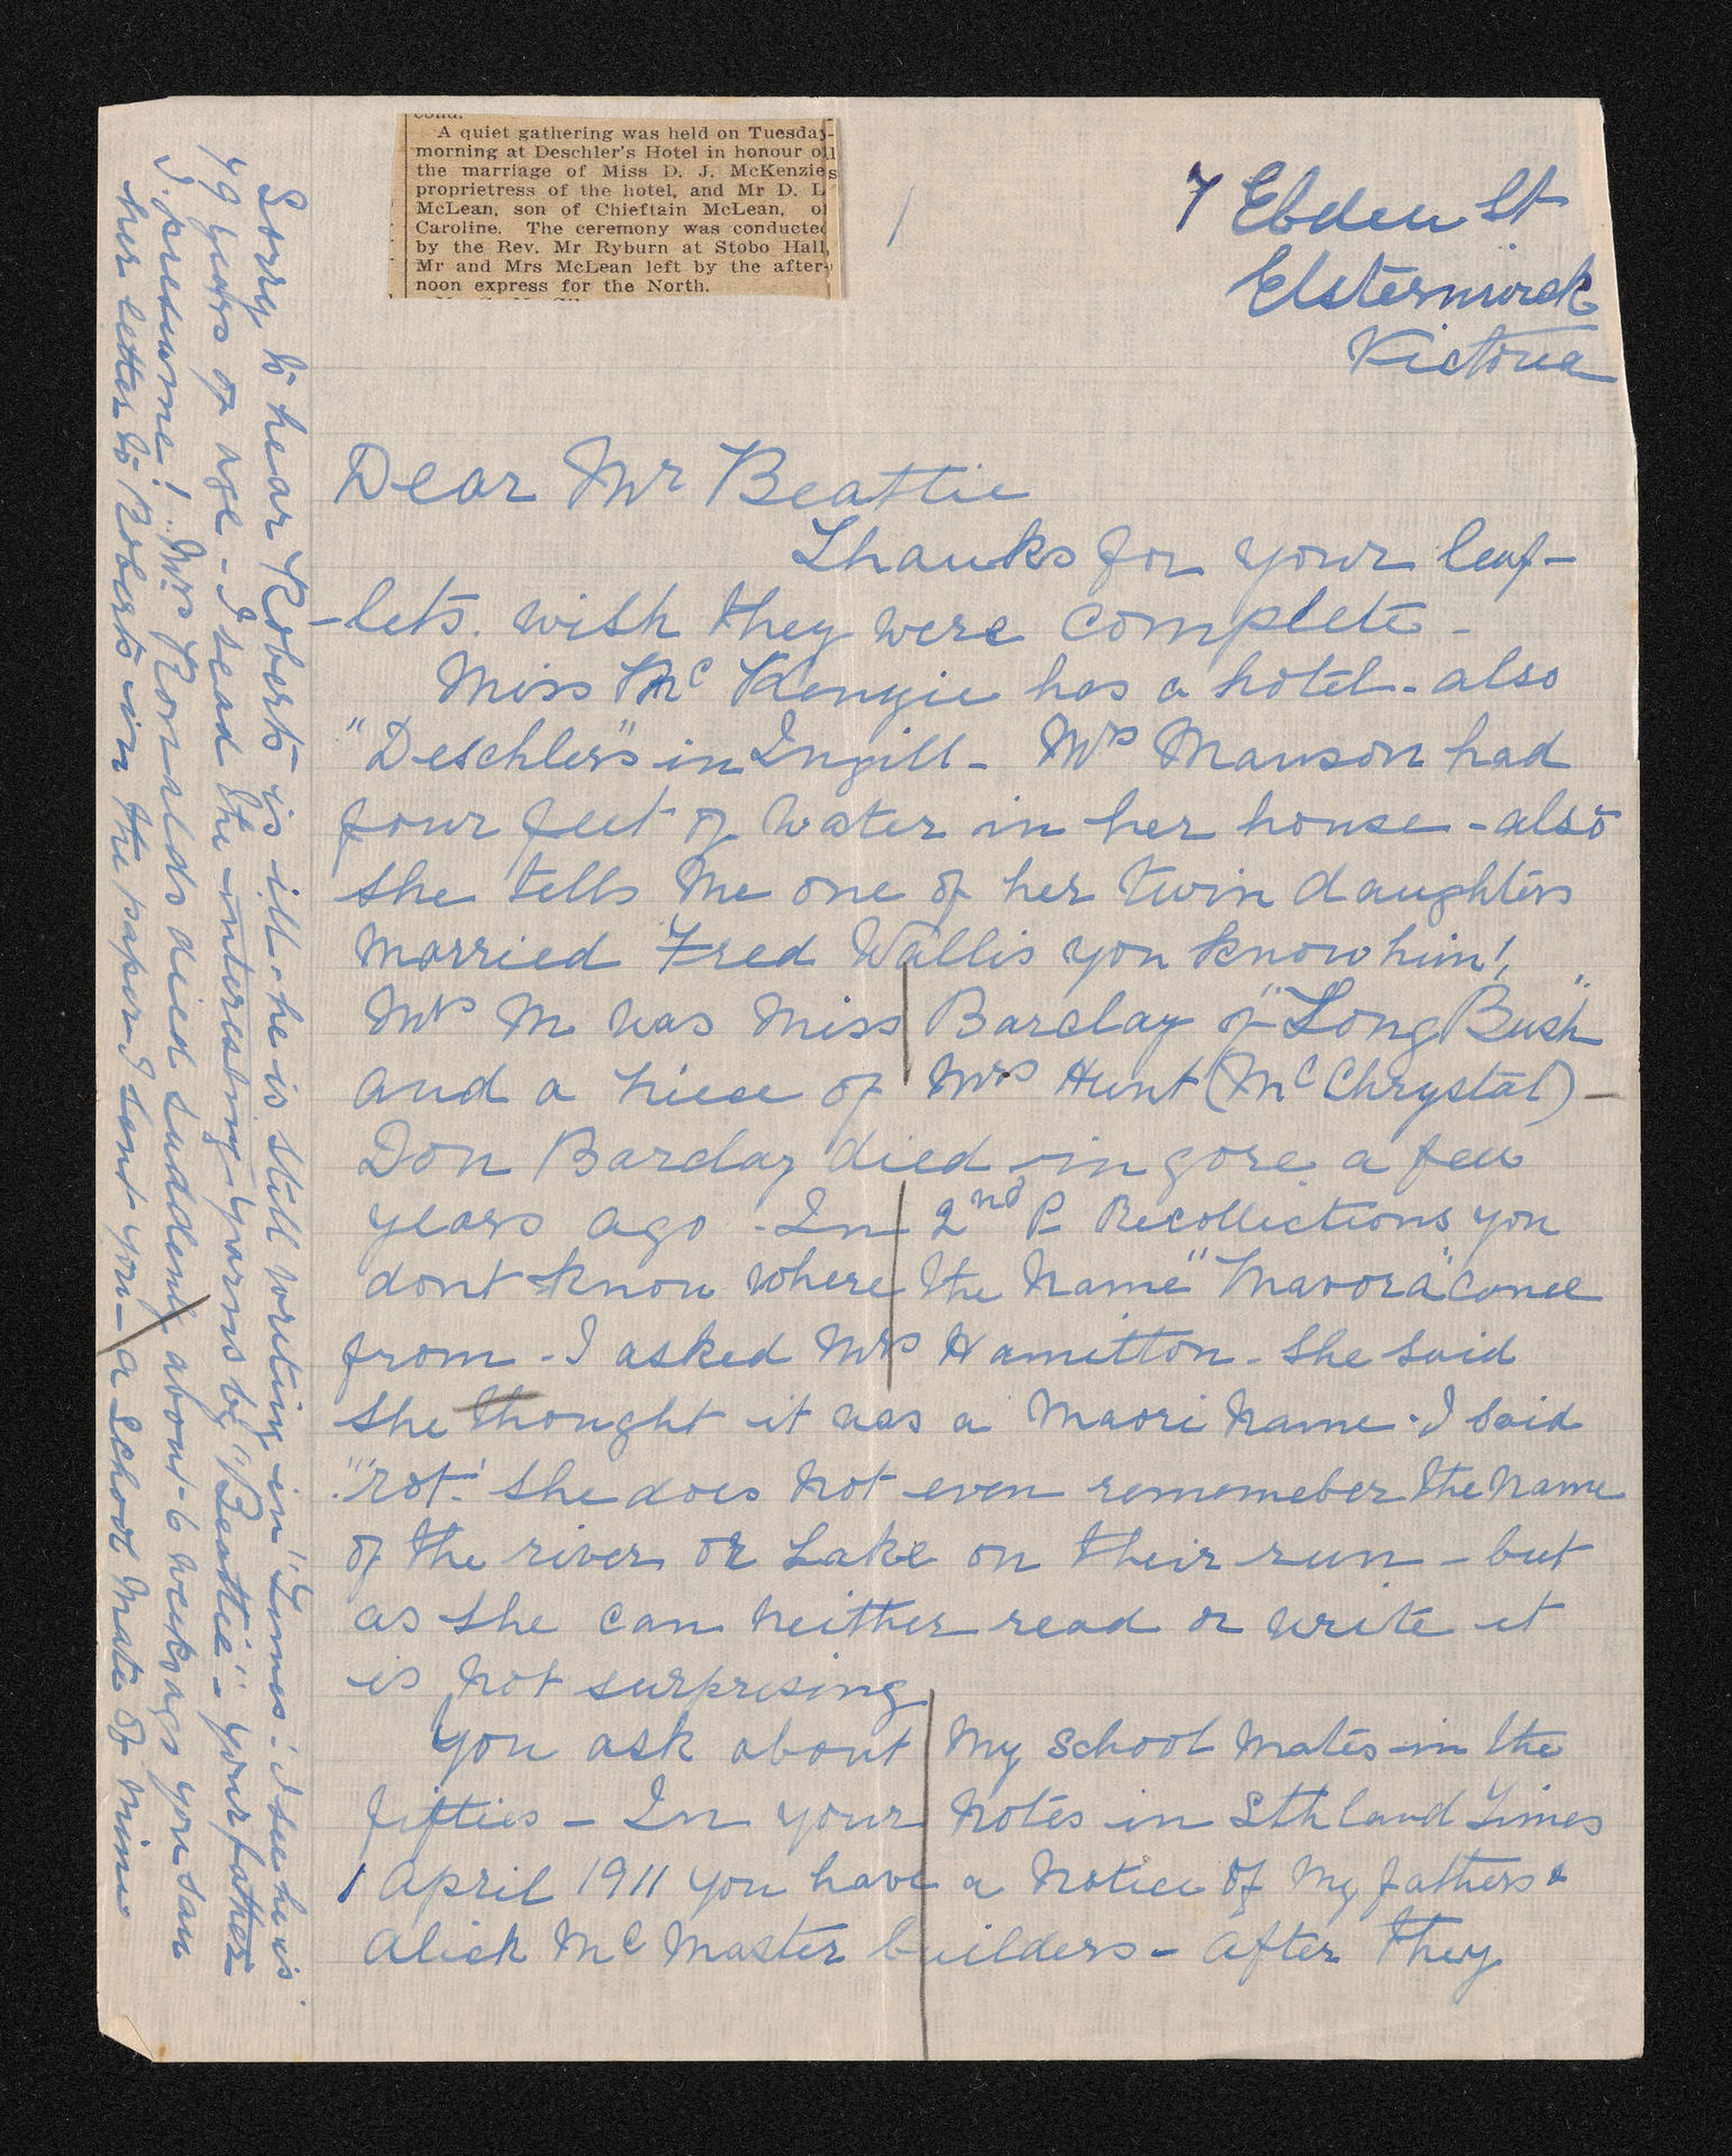 A quiet gathering was held on Tuesday
morning at Deschler's Hotel in honour of
the marriage of Miss D. J. McKenzie
proprietress of the hotel, and Mr D. L
McLean, son of Chieftain McLean, of
Caroline. The ceremony was conducted
by the Rev. Mr Ryburn at Stobo Hall,
Mr and Mrs McLean left by the after-
noon express for the North.
7 Ebden St
Elsternwick
Victoria
Dear Mr Beattie
Thanks for your leaf-
-lets. wish they were complete -
Miss McKenzie has a hotel - also
"Deschlers" in Ingill - Mrs Manson had
four feet of water in her house - also
she tells me one of her twin daughters
married Fred Wallis you know him!
Mrs M was Miss Barclay of "Long Bush"
and a niece of Mrs Hunt (McChrystal) -
Don Barclay died in gore a few
years ago - In 2nd P Recollections you
dont know where the name "Mavora" came
from - I asked Mrs Hamilton - She said
she thought it was a Maori name - I said
"rot." she does not even rememeber the name
of the river or Lake on their run - but
as she can neither read or write it
is not surprising
You ask about my school mates in the
fifties - In your notes in Sthland Times
1 April 1911 you have a notice of my fathers &
Alick McMaster builders - After they
Sorry to hear Roberts is ill - he is still writing in "Times" - I see he is
79 years of age - I read the interesting yarns by "Beattie" - your father
I presume! Mrs Ronalds died suddenly about 6 weeks ago you saw
her letter to Roberts in the paper I sent you - a School mate of mine